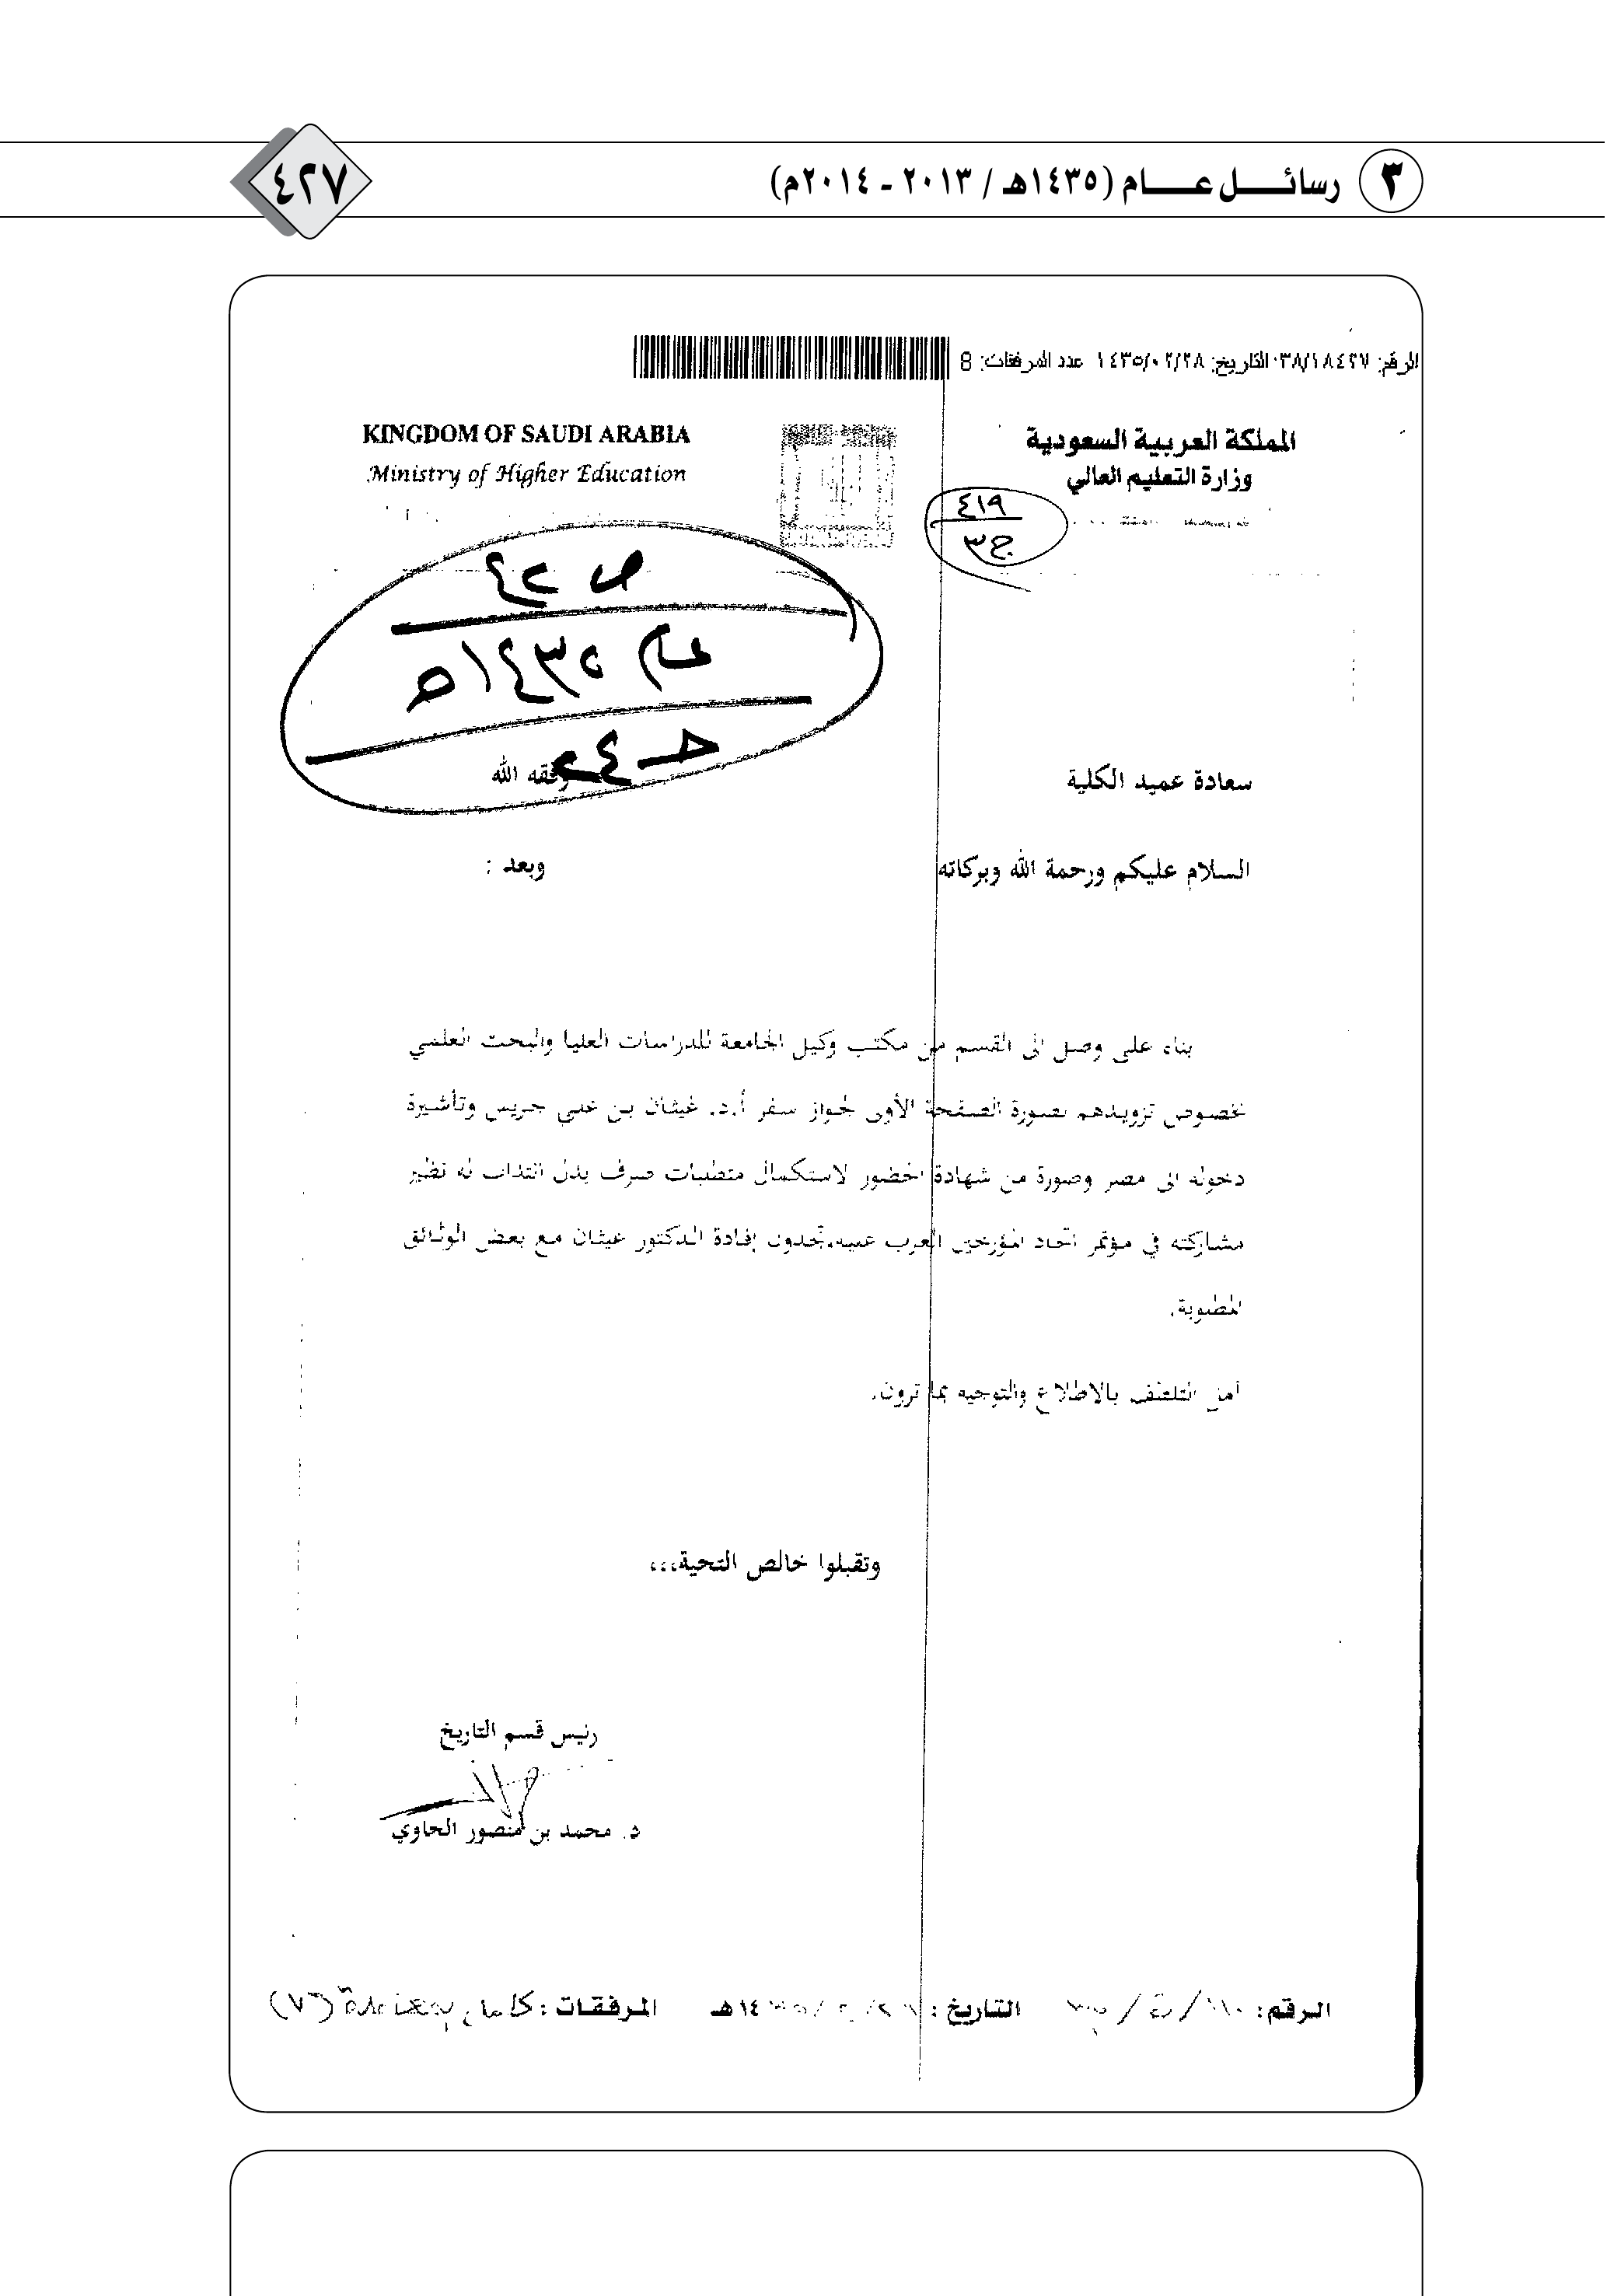 ٣ رسائل عام (١٤٣٥هـ / ٢٠١٣ - ٢٠١٤م)
٤٢٧
الرقم: ٠٣٨/١٨٤٢٧ التاريخ: ١٤٣٥/٠٢/٢٨ عدد المرفقات: 8
المملكة العربية السعودية
وزارة التعليم العالي
KINGDOM OF SAUDI ARABIA
Ministry of Higher Education
٤١٩
ج٣
ص ٤٢
عام ١٤٣٥هـ
سعادة عميد الكلية وفقه الله
السلام عليكم ورحمة الله وبركاته وبعد :
بناء على وصل الى القسم من مكتب وكيل الجامعة للدراسات العليا والبحث العلمي
بخصوص تزويدهم بصورة الصفحة الأولى لجواز سفر أ.د. غيثان بن علي جريس وتأشيرة
دخوله الى مصر وصورة من شهادة الحضور لاستكمال متطلبات صرف بدل انتداب له نظير
مشاركته في مؤتمر اتحاد المؤرخين العرب عليه.تجدون إفادة الدكتور غيثان مع بعض الوثائق
المطلوبة.
آمل التلطف بالاطلاع والتوجيه بما ترون.
وتقبلوا خالص التحية،،،
رئيس قسم التاريخ
د. محمد بن منصور الحاوي
الرقم: التاريخ: ١٤هـ المرفقات: